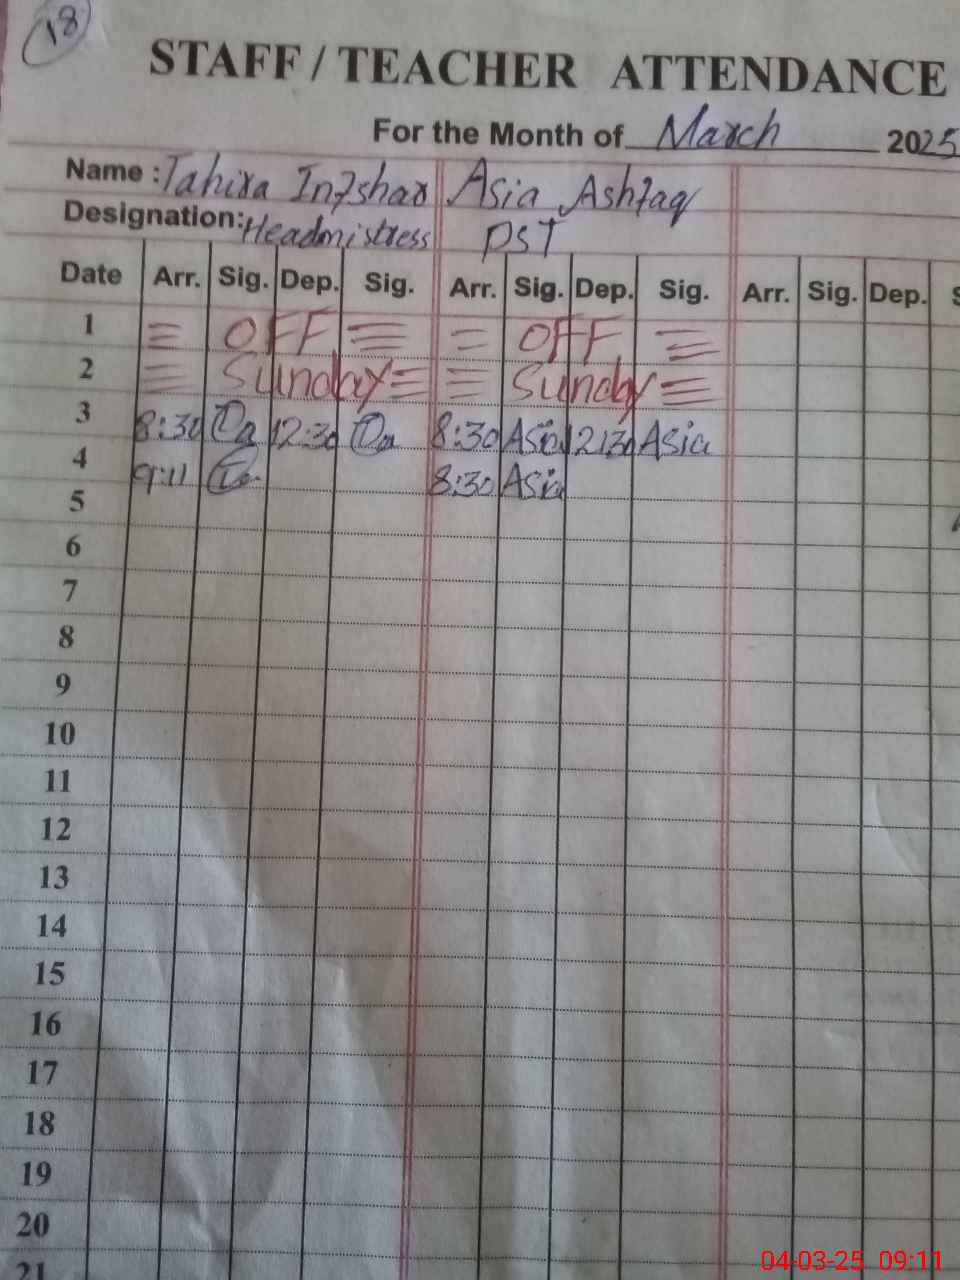 18
STAFF / TEACHER ATTENDANCE
For the Month of March 2025
Name : Tahira Inzshar Asia Ashfaq
Designation: Headmistress PST
Date Arr. Sig. Dep. Sig. Arr. Sig. Dep. Sig. Arr. Sig. Dep. S
1 = OFF = = OFF =
2 = Sunday = = Sunday =
3 8:30 12:30 8:30 Asia 12:30 Asia
4 9:11 8:30 Asia
5
6
7
8
9
10
11
12
13
14
15
16
17
18
19
20
21
04-03-25 09:11